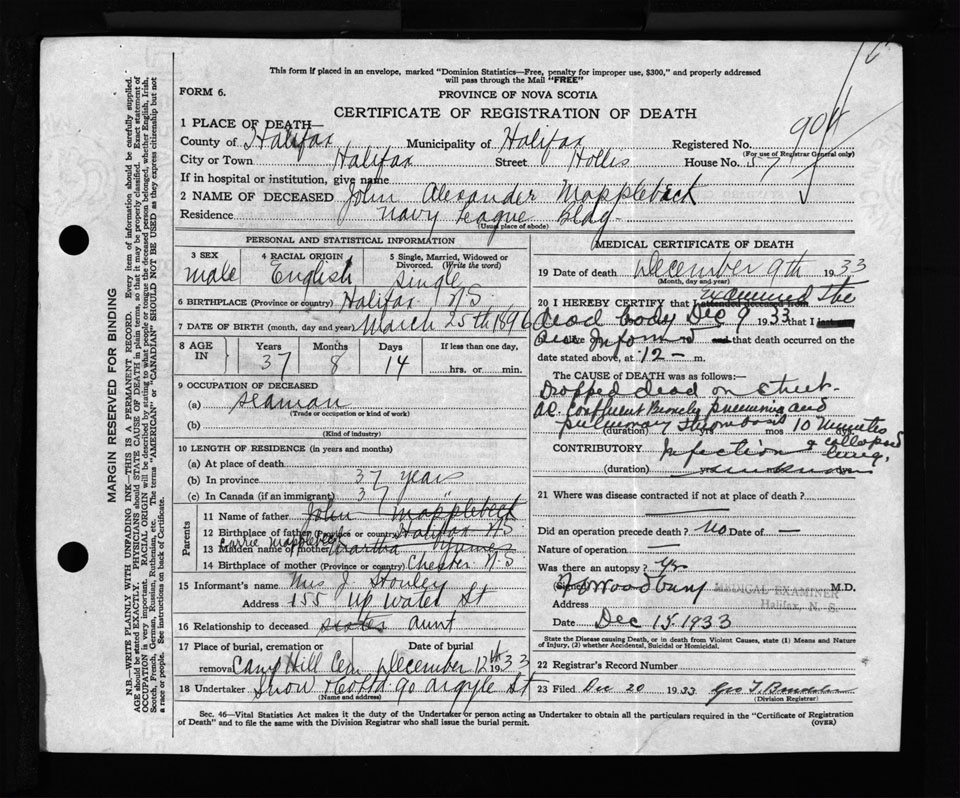 This form if placed in an envelope, marked "Dominion Statistics—Free, penalty for improper use, $300," and properly addressed
will pass through the Mail "FREE"
FORM 6.
PROVINCE OF NOVA SCOTIA
CERTIFICATE OF REGISTRATION OF DEATH
904
1 PLACE OF DEATH—
County of Halifax Municipality of Halifax Registered No.
(For use of Registrar General only)
City or Town Halifax Street Hollis House No. 57
If in hospital or institution, give name
2 NAME OF DECEASED John Alexander Mappleback
Residence Navy League Bldg.
(Usual place of abode)
PERSONAL AND STATISTICAL INFORMATION
3 SEX male
4 RACIAL ORIGIN English
5 Single, Married, Widowed or Divorced. (Write the word) single
6 BIRTHPLACE (Province or country) Halifax N.S.
7 DATE OF BIRTH (month, day and year) March 25th 1896
8 AGE IN Years Months Days If less than one day,
37 8 14 hrs. or min.
9 OCCUPATION OF DECEASED
(a) seaman
(Trade or occupation or kind of work)
(b)
(Kind of industry)
10 LENGTH OF RESIDENCE (in years and months)
(a) At place of death
(b) In province 37 years
(c) In Canada (if an immigrant) 37 "
Parents
11 Name of father John Mappleback
12 Birthplace of father (Province or country) Halifax N.S
Carrie Mappleback
13 Maiden name of mother Martha
14 Birthplace of mother (Province or country) Chester N.S
15 Informant's name Mrs J.
Address 155 Up Water St
16 Relationship to deceased sister aunt
17 Place of burial, cremation or removal Camp Hill Cem
Date of burial December 12th 1933
18 Undertaker Snow 90 Argyle St
(Name and address)
MEDICAL CERTIFICATE OF DEATH
19 Date of death December 9th 1933
(Month, day and year)
20 I HEREBY CERTIFY that I attended deceased from examined the
dead body Dec 9 1933 that I last saw
alive informed and that death occurred on the
date stated above, at 12 — m.
The CAUSE of DEATH was as follows:—
Dropped dead on street.
confluent pneumonia and
pulmonary thrombosis 10 minutes
(duration) yrs mos dys.
CONTRIBUTORY Infection & collapsed lung.
(duration) unknown
21 Where was disease contracted if not at place of death?
Did an operation precede death? no Date of —
Nature of operation —
Was there an autopsy? Yes
(Signed) Woodbury M.D.
MEDICAL EXAMINER
Halifax, N. S.
Address
Date Dec 15. 1933
State the Disease causing Death, or in death from Violent Causes, state (1) Means and Nature
of Injury, (2) whether Accidental, Suicidal or Homicidal.
22 Registrar's Record Number
23 Filed Dec 20 1933 Geo T.
(Division Registrar)
Sec. 46—Vital Statistics Act makes it the duty of the Undertaker or person acting as Undertaker to obtain all the particulars required in the "Certificate of Registration
of Death" and to file the same with the Division Registrar who shall issue the burial permit.
(OVER)
MARGIN RESERVED FOR BINDING
N.B.—WRITE PLAINLY WITH UNFADING INK—THIS IS A PERMANENT RECORD. Every item of information should be carefully supplied.
AGE should be stated EXACTLY. PHYSICIANS should STATE CAUSE OF DEATH in plain terms, so that it may be properly classified. Exact statement of
OCCUPATION is very important. RACIAL ORIGIN will be described by stating to what people or tongue the deceased person belonged, whether English, Irish,
Scotch, French, German, Russian, Ruthenian, etc. The terms "AMERICAN" or "CANADIAN" SHOULD NOT BE USED as they express citizenship but not
a race or people. See instructions on back of Certificate.